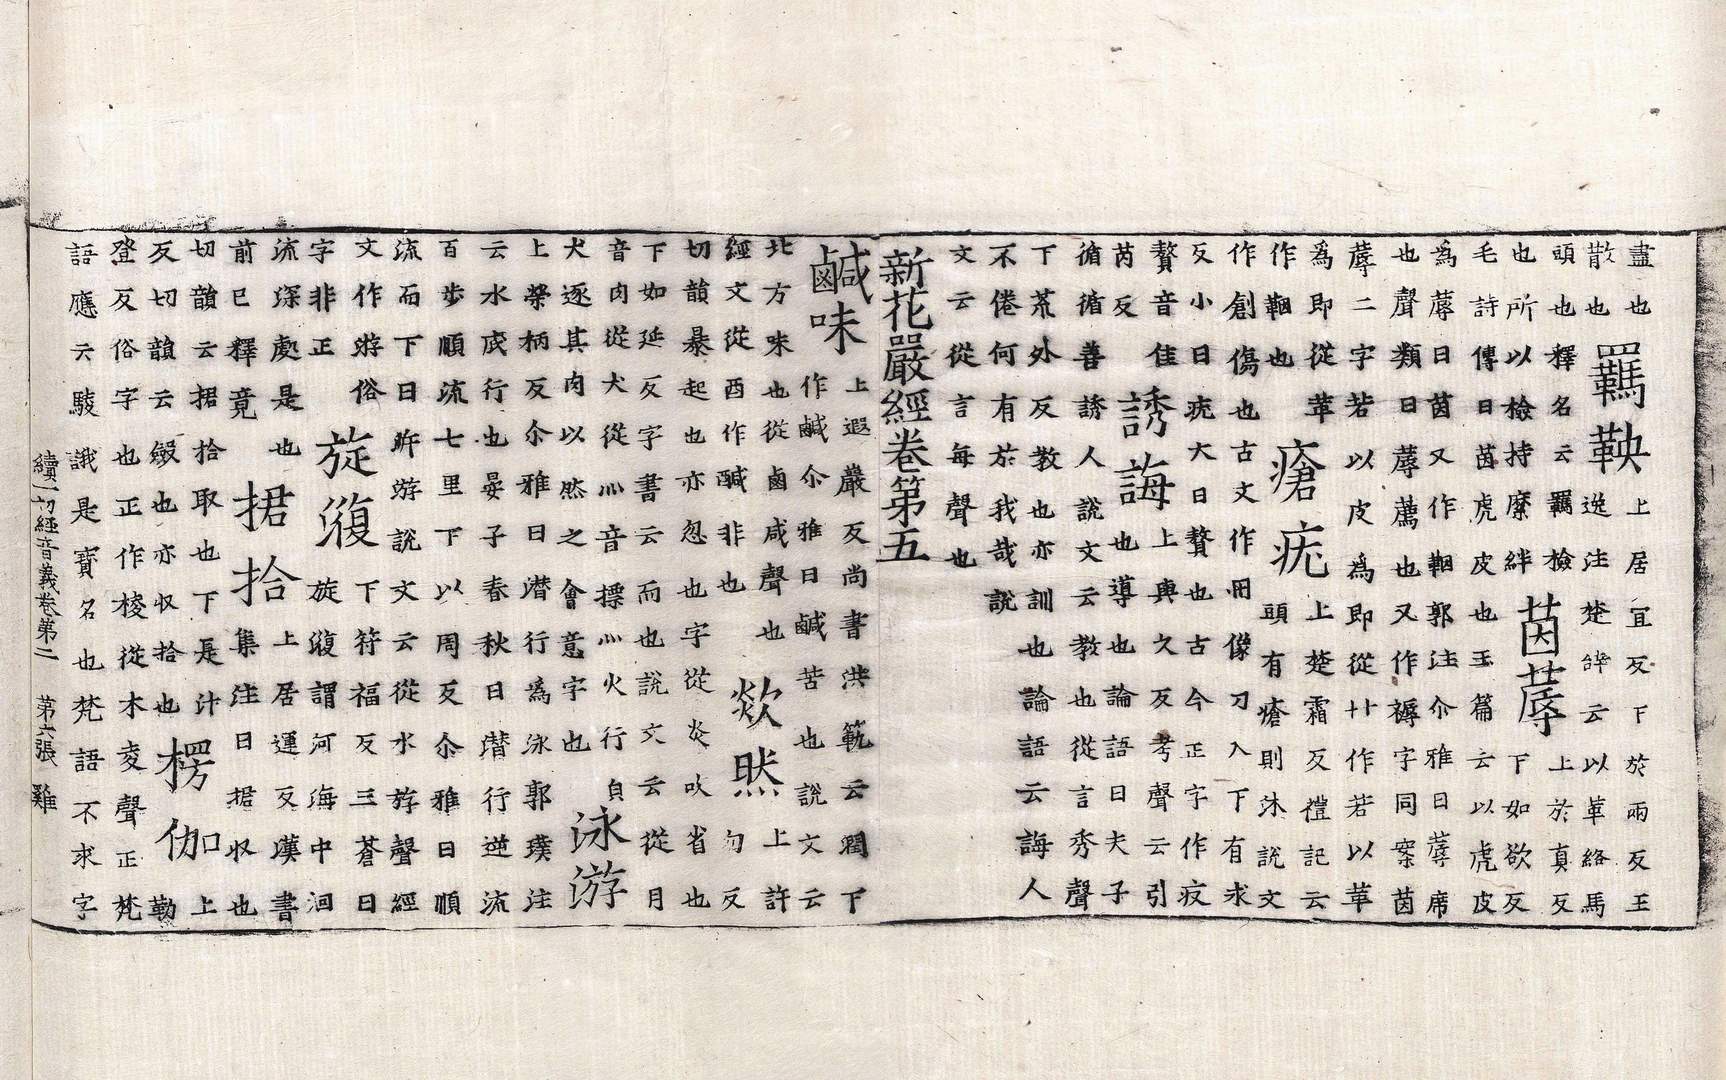 盡也
散也
羈鞅
上居宜反下於兩反王
逸注楚辞云以革絡馬
頭也釋名云羈檢
也所以檢持縻絆
茵蓐
上於真反
下如欲反
毛詩傳曰茵虎皮也玉篇云以虎皮
為蓐曰茵又作鞇郭注尒雅曰蓐席
也聲類曰蓐薦也又作褥字同案茵
蓐二字若以皮為即從卄作若以革
為即從革
作鞇也
瘡疣
上楚霜反禮記云
頭有瘡則沐說文
作創傷也古文作冊像刀入下有求
反小曰疣大曰贅也古今正字作疚
贅音佳
芮反
誘誨
上與久反考聲云引
也導也論語曰夫子
循循善誘人說文云教也從言秀聲
下荒外反教也亦訓也論語云誨人
不倦何有於我哉說
文云從言每聲也
新花嚴經卷第五
鹹味
上遐嚴反尚書洪範云潤下
作鹹尒雅曰鹹苦也說文云
北方味也從鹵咸聲也
經文從酉作醎非也
欻然
上許
勿反
切韻暴起也亦忽也字從炎吹省也
下如延反字書云而也說文云從月
音肉從犬從灬音摽灬火行皃
犬逐其肉以然之會意字也
泳游
上榮柄反尒雅曰潛行為泳郭璞注
云水底行也晏子春秋曰潛行逆流
百步順流七里下以周反尒雅曰順
流而下曰泝游說文云從水斿聲經
文作游俗
字非正
旋澓
下符福反三蒼曰
旋澓謂河海中洄
流深處是也
前已釋竟
捃拾
上居運反漢書
集注曰捃收也
切韻云捃拾取也下是汁
反切韻云斂也亦收拾也
楞伽
上
勒
登反俗字也正作棱從木夌聲正梵
語應云駿誐是寶名也梵語不求字
續一切經音義卷第二　第六張　雞